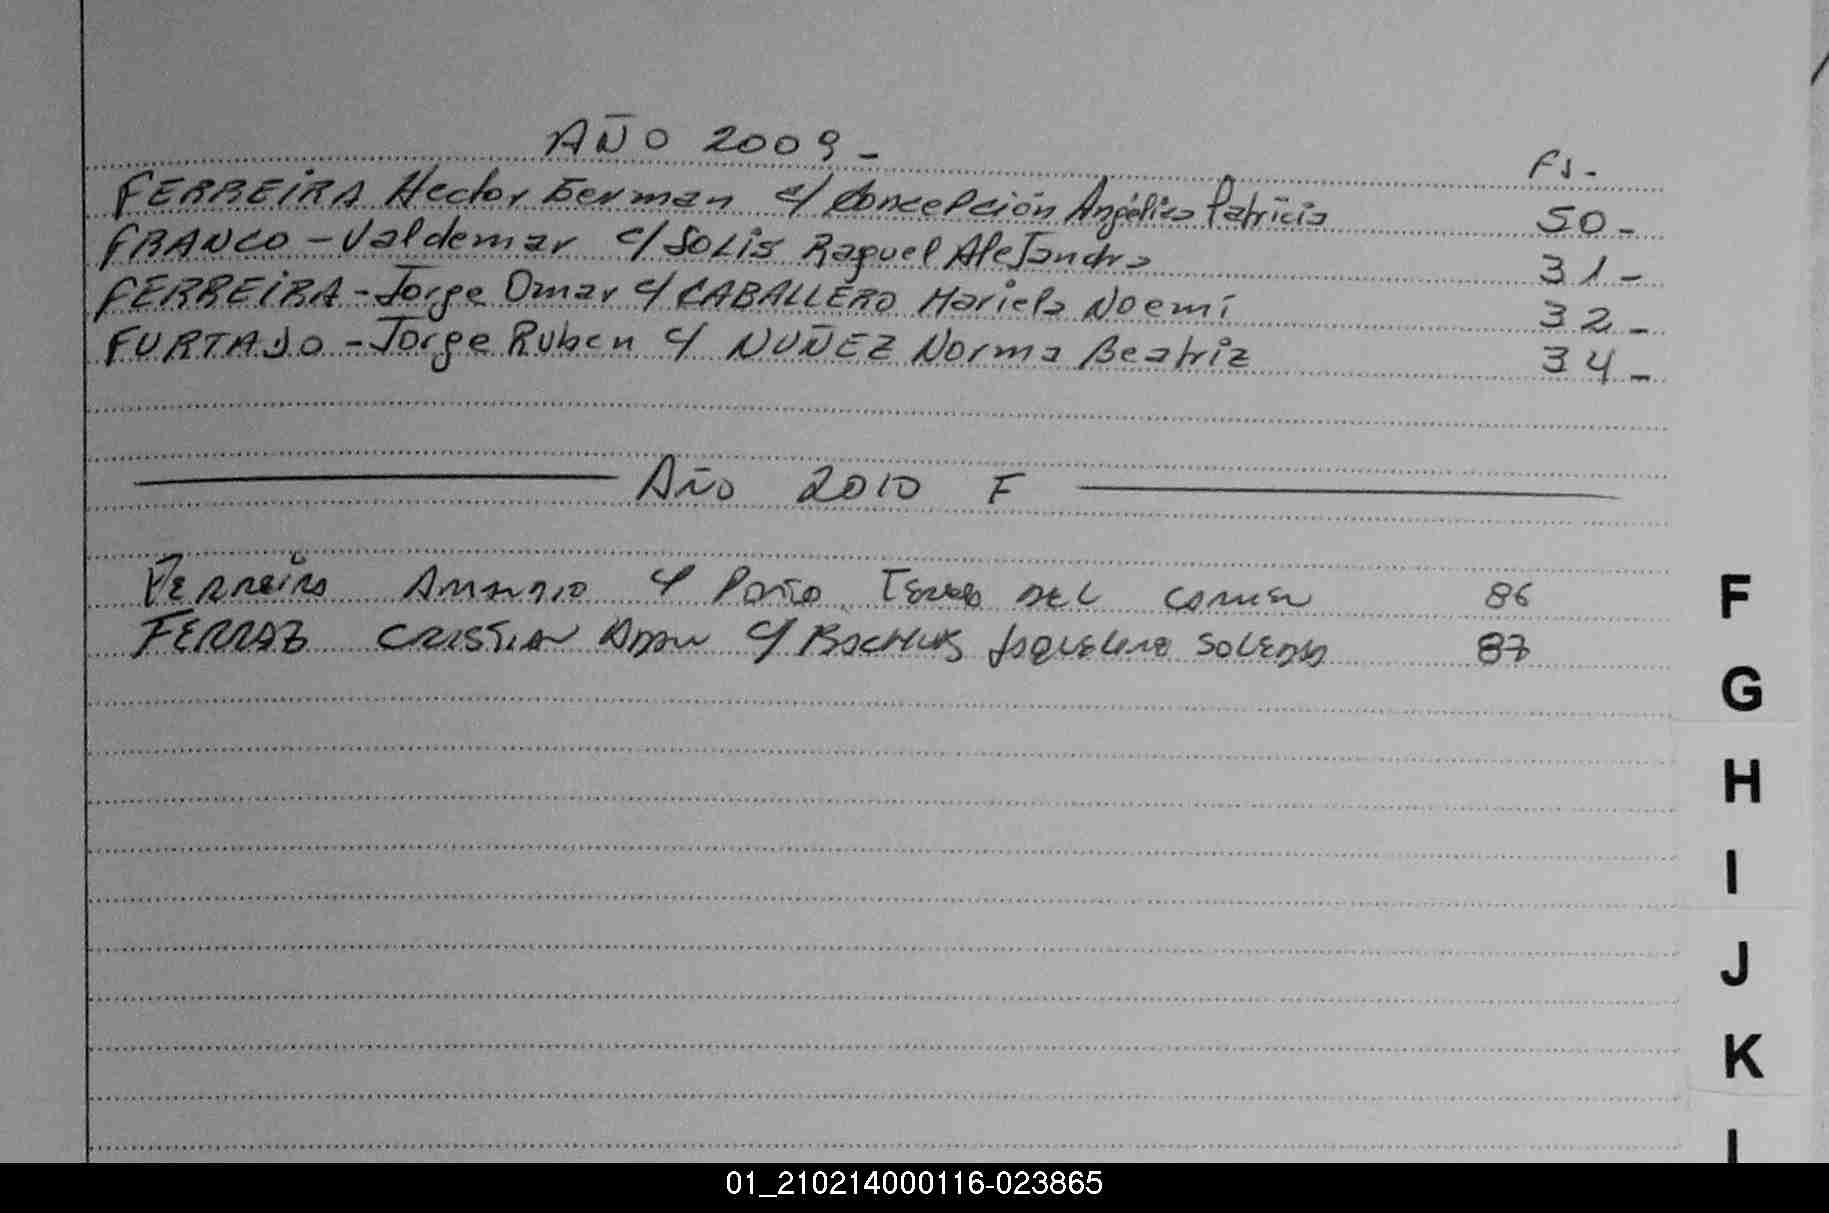 AÑO 2009 -
Fs.-
FERREIRA Hector German c/ Concepción Angélica Patricia 50 -
FRANCO - Valdemar c/ SOLIS Raquel Alejandra 31 -
FERREIRA - Jorge Omar c/ CABALLERO Mariela Noemi 32 -
FURTADO - Jorge Ruben c/ NUÑEZ Norma Beatriz 34 -
Año 2010 F
Ferreira Amancio c/ DEL Carmen 86
FERRAZ CRISTIAN Adan c/ Jaqueline Soledad 87
F
G
H
I
J
K
01_210214000116-023865